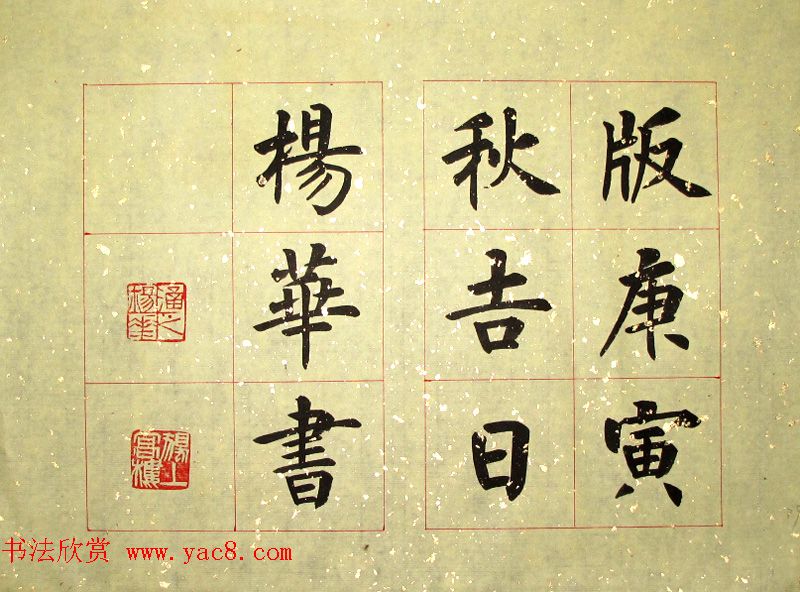 版庚寅
秋吉日
楊華書
书法欣赏 www.yac8.com